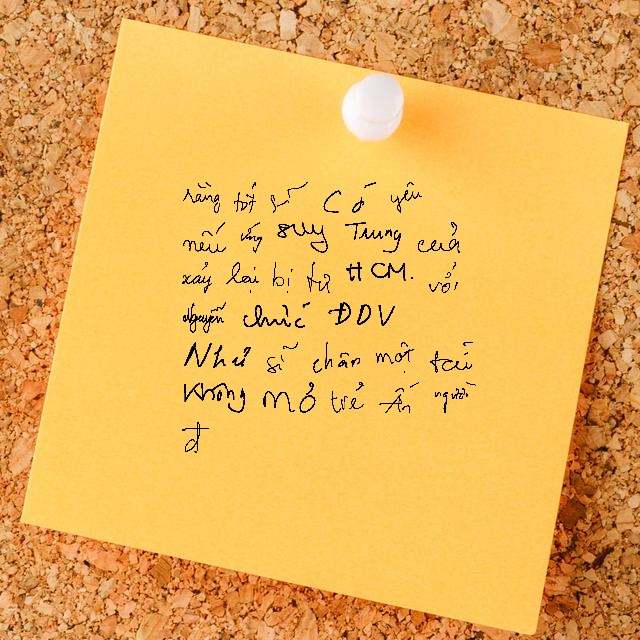 rằng tốt sĩ Có yêu
nếu ứng suy Trung cuả
xảy lại bị tư HCM. với
nguyễn chức ĐDV
Như sĩ chân một tái
Không Mở trẻ Ấn người
đ